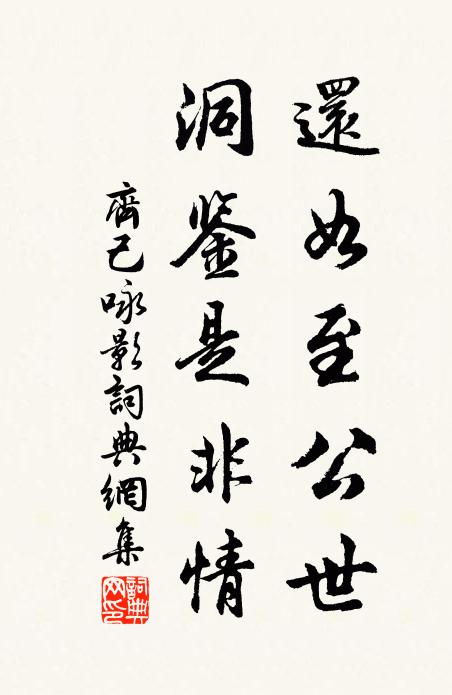 還如至公世
洞鉴是非情
齊己詠影詞典網集
詞典网印